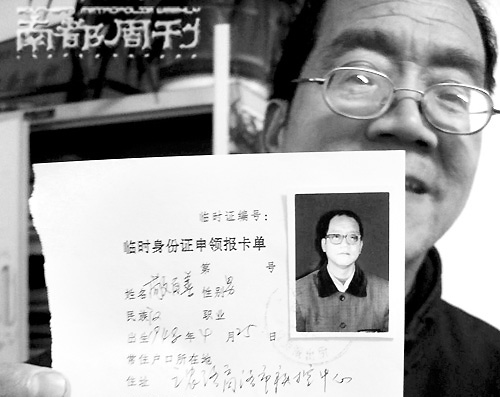 南都周刊
临时证编号：
临时身份证申领报卡单
第 号
姓名 性别男
民族汉 职业
出生1948年4月25日
常住户口所在地
住址 商洛市 中心